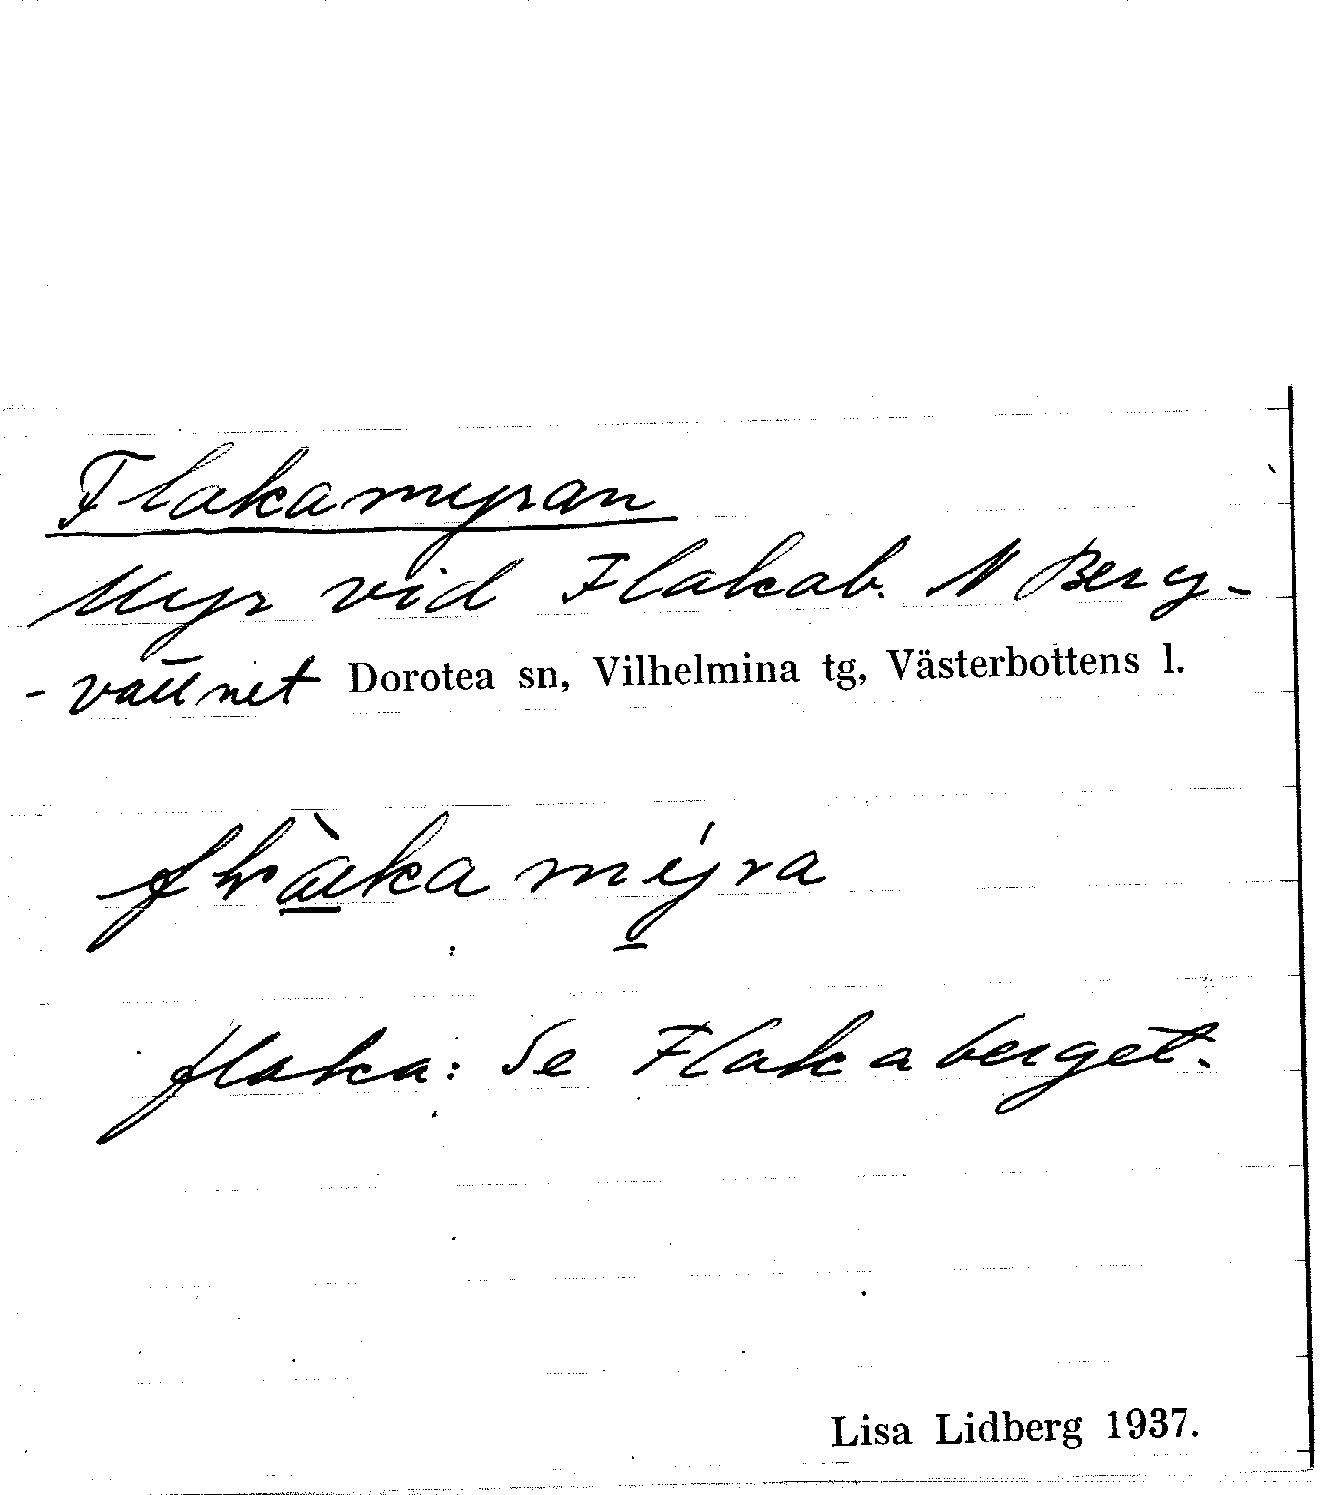 Flakamyran
Myr vid Flakab. N Berg-
-vattnet Dorotea sn, Vilhelmina tg, Västerbottens l.
flaka: Se Flakaberget.
Lisa Lidberg 1937.